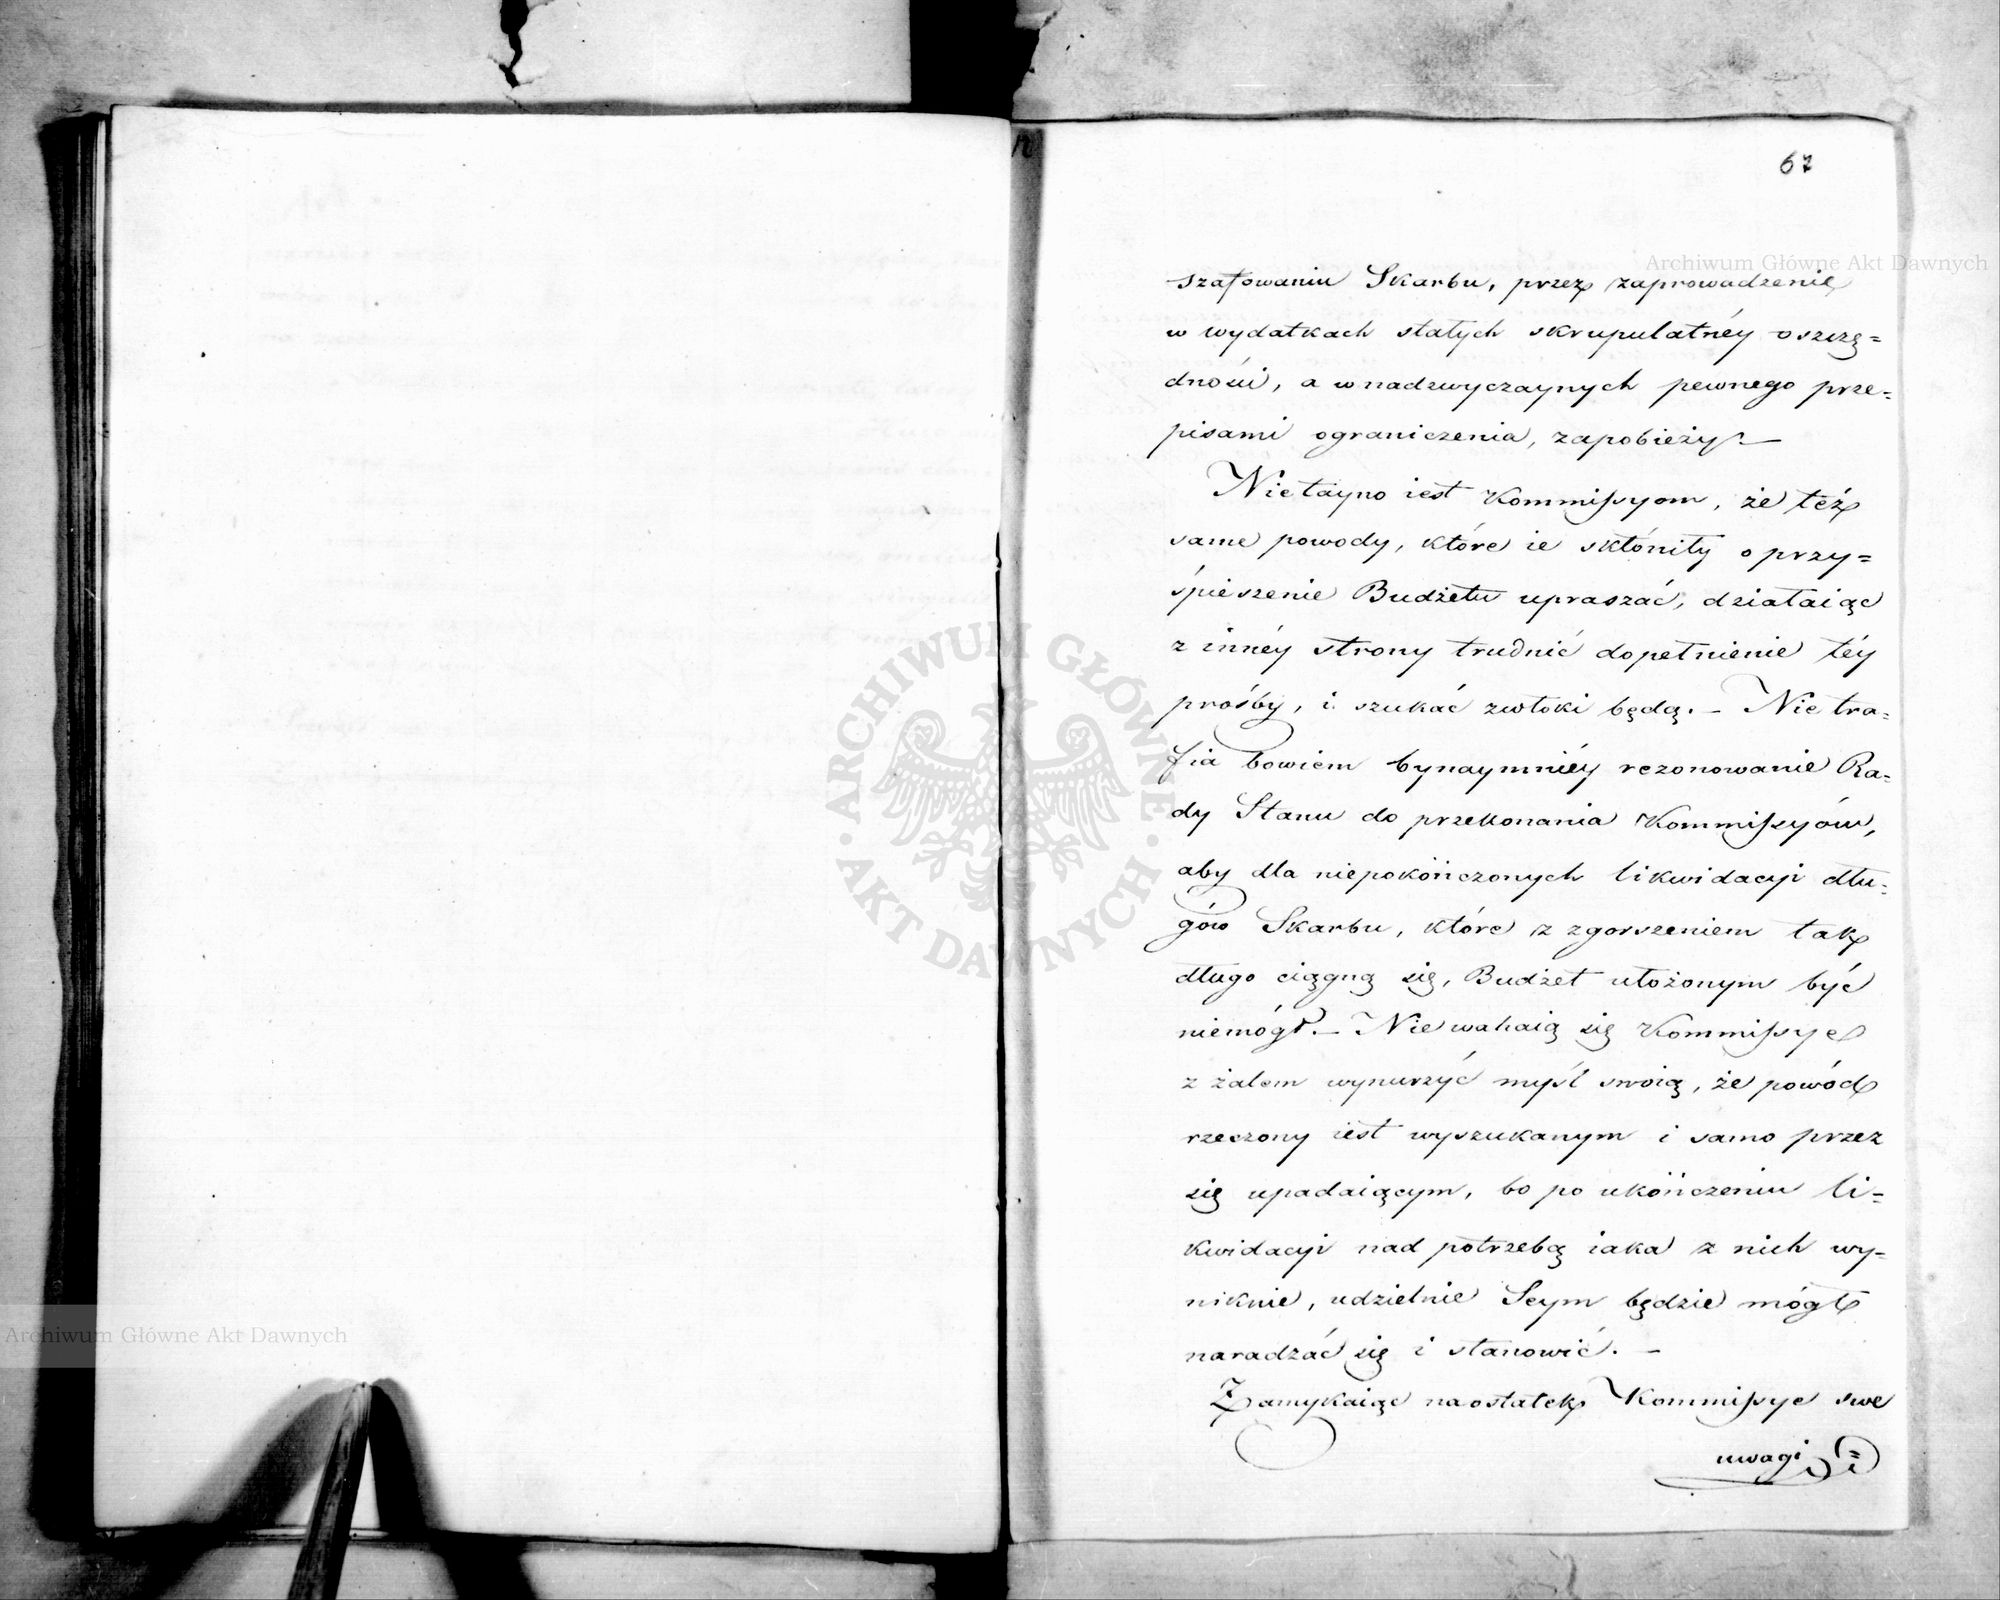 67
szafowaniu Skarbu, przez zaprowadzenie
w wydatkach stałych skrupulatnéy oszczę=
dności, a w nadzwyczaynych pewnego prze=
pisami ograniczenia, zapobieży. —
Nie tayno iest Kommissyom, że też
same powody, które ie skłóniły o przy=
śpieszenie Budżetu upraszać, działaiąc
z innéy strony trudnić dopełnienie téy
prośby, i szukać zwłoki będą. — Nie tra=
fia bowiem bynaymniéy rezonowanie Ra=
dy Stanu do przekonania Kommissyów,
aby dla niepokończonych likwidacyi dłu=
gów Skarbu, które z zgorszeniem tak
długo ciągną się, Budżet ułożonym być
niemógł. — Nie wahaią się Kommissye
z żalem wynurzyć myśl swoią, że powód
rzeczony iest wyszukanym i samo przez
się upadaiącym, bo po ukończeniu li=
kwidacyi nad potrzebą iaka z nich wy=
niknie, udzielnie Seym będzie mógł
naradzać się i stanowić. —
Zamykaiąc naostatek Kommissye swe
uwagi
Archiwum Główne Akt Dawnych
ARCHIWUM GŁÓWNE
AKT DAWNYCH
Archiwum Główne Akt Dawnych